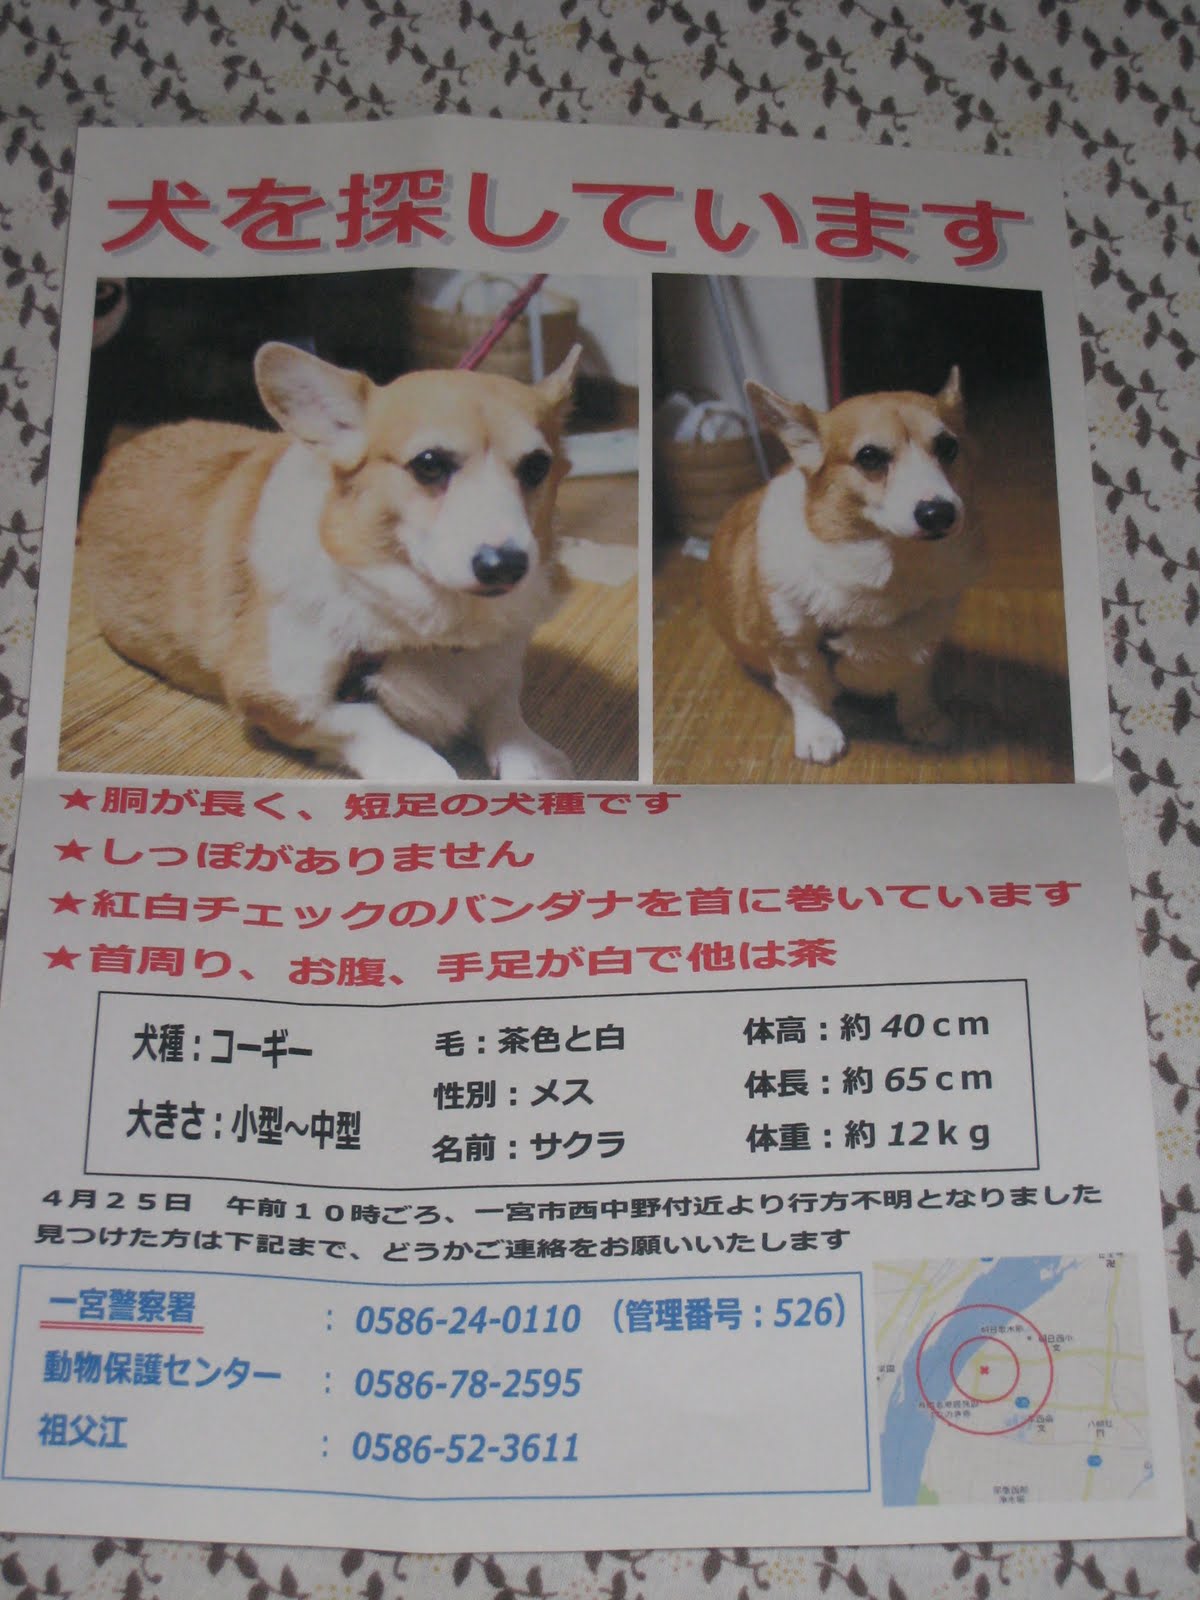 犬を探しています
★胴が長く、短足の犬種です
★しっぽがありません
★紅白チェックのバンダナを首に巻いています
★首周り、お腹、手足が白で他は茶
犬種：コーギー 毛：茶色と白 体高：約40cm
性別：メス 体長：約65cm
大きさ：小型～中型 名前：サクラ 体重：約12kg
4月25日　午前10時ごろ、一宮市西中野付近より行方不明となりました
見つけた方は下記まで、どうかご連絡をお願いいたします
一宮警察署 ： 0586-24-0110 （管理番号：526）
動物保護センター ： 0586-78-2595
祖父江 ： 0586-52-3611